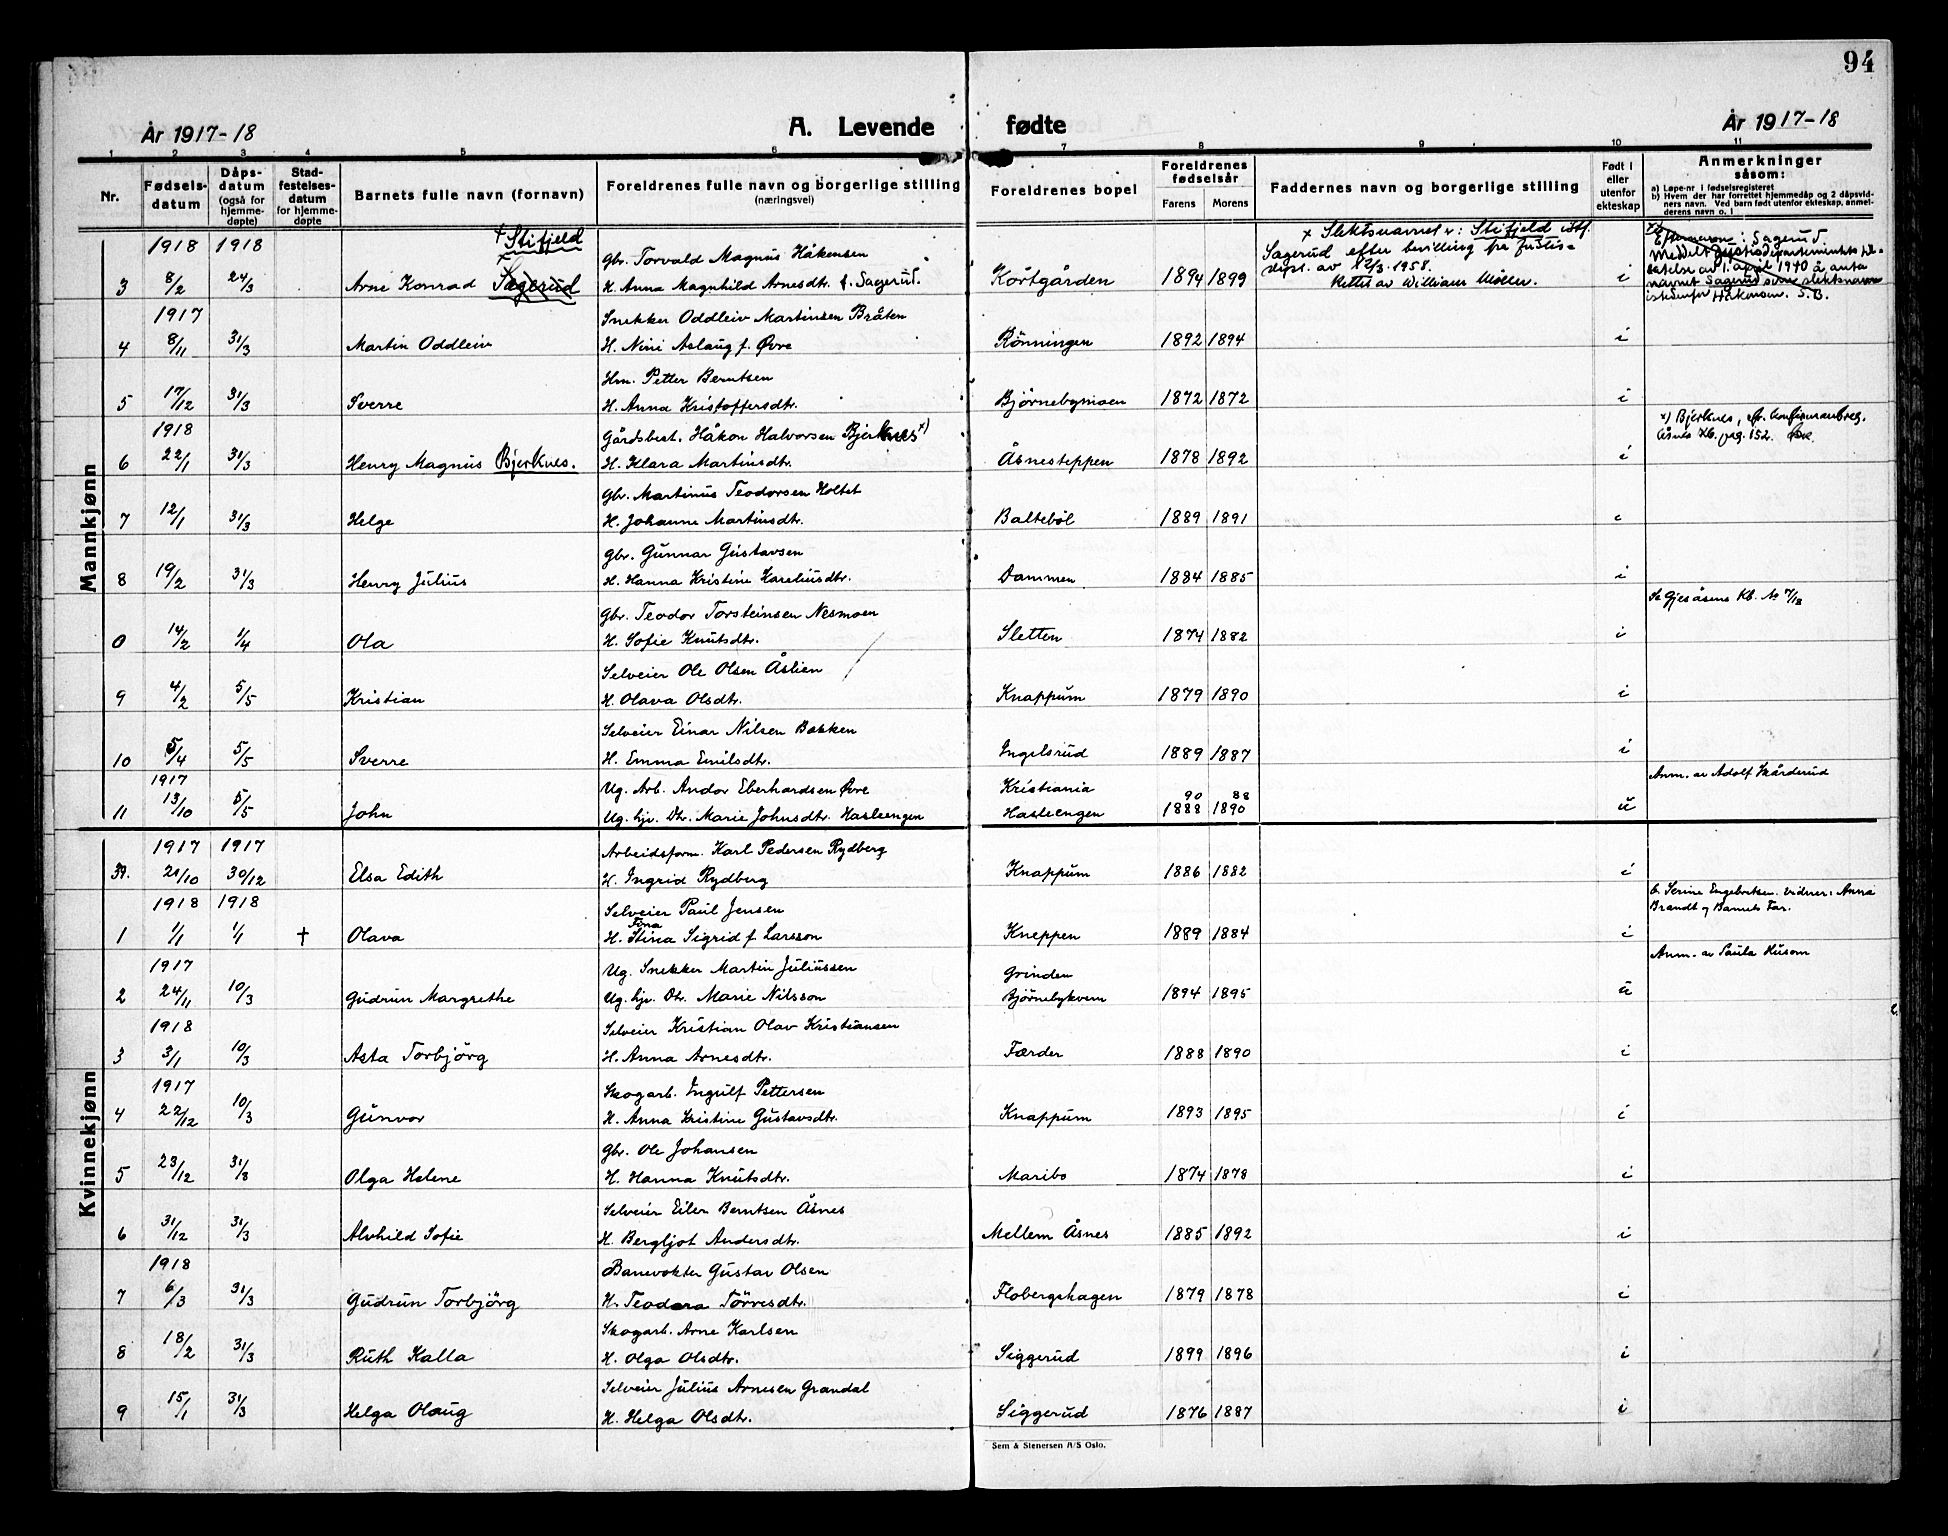 94
År 1917-18
A. Levende fødte
År 1917-18
1 2 3 4 5 6 7 8 9 10 11
Nr.
Fødsels-
datum
Dåps-
datum
(også for
hjemme-
døpte)
Stad-
festelses-
datum
for hjemme-
døpte
Barnets fulle navn (fornavn)
Foreldrenes fulle navn og borgerlige stilling
(næringsvei)
Foreldrenes bopel
Foreldrenes
fødselsår
Farens Morens
Faddernes navn og borgerlige stilling
Født i
eller
utenfor
ekteskap
Anmerkninger
såsom:
a) Løpe-nr i fødselsregisteret
b) Hvem der har forrettet hjemmedåp og 2 dåpsvid-
ners navn. Ved barn født utenfor ekteskap, anmel-
derens navn o. l.
Mannkjønn
1918 1918 + Stifjeld Gbr. Torvald Magnus Håkensen
3 8/2 24/3 Arne Konrad Sagerud H. Anna Magnhild Arnesdtr. f. Sagerud. Kortgården 1894 1899 i
x Slektsnavnet r: Stifjeld istf.
Sagerud efter bevilling fra justis-
dept. av 12/3 1958.
Rettet av William Møller.
Efternavn: Sagerud.
Meddelt Justisdepartementets til-
latelse av 1. april 1940 å anta
navnet Sagerud som slektsnavn
istedenfor Håkensen. S.B.
1917 Snekker Oddleiv Martinsen Bråten
4 8/11 31/3 Martin Oddleiv H. Nini Aslaug f. Øvre Rönningen 1892 1894 i
Hm. Petter Berntsen
5 17/12 31/3 Sverre H. Anna Kristoffersdtr. Bjørnebymoen 1872 1872 i
1918 Gårdsbest. Håkon Halvorsen Bjerknes x)
6 22/1 31/3 Henry Magnus Bjerknes. H. Klara Martinsdtr. Åsnesteppen 1878 1892 i
x) Bjerknes, efr. konfirmantreg.
Åsnes kb. pag. 152.
Gbr. Martinus Teodorsen Holtet
7 12/1 31/3 Helge H. Johanne Martinsdtr. Balteböl 1889 1891 i
Gbr. Gunnar Gustavsen
8 19/2 31/3 Henry Julius H. Hanna Kristine Kareliusdtr. Dammen 1884 1885 i
Gbr. Teodor Torsteinsen Nesmoen
0 14/2 1/4 Ola H. Sofie Knutsdtr. Sletten 1874 1882 i
Se Gjesåsens Kb. No 7/18
Selveier Ole Olsen Åslien
9 4/2 5/5 Kristian H. Olava Olsdtr. Knappum 1879 1890 i
Selveier Einar Nilsen Bakken
10 5/4 5/5 Sverre H. Emma Emilsdtr. Ingelsrud 1889 1887 i
1917 Ug. Arb. Andor Eberhardsen Øvre Kristiania 90 88
11 13/10 5/5 John Ug. hjv. Dtr. Marie Johnsdtr. Hasleengen Hasleengen 1888 1890 u
Anm. av Adolf Skårderud
Kvinnekjønn
1917 1917 Arbeidsform. Karl Pedersen Rydberg
39. 21/10 30/12 Elsa Edith H. Ingrid Rydberg Knappum 1886 1882 i
1918 1918 Selveier Paul Jensen
Fina
1 1/1 1/1 † Olava H. Stina Sigrid f. Larsson Kneppen 1889 1884 i
b. Serine Engebretsen. vidner: Anna
Brandt og Barnets Far.
1917 Ug. Snekker Martin Juliussen Grinden
2 24/11 10/3 Gudrun Margrethe Ug. hjv. Dtr. Marie Nilsson Bjørnebykvern 1894 1895 u
Anm. av Paula Husom
1918 Selveier Kristian Olav Kristiansen
3 3/1 10/3 Asta Torbjörg H. Anna Arnesdtr. Færder 1888 1890 i
1917 Skogarb. Ingulf Pettersen
4 22/12 10/3 Gunvor H. Anna Kristine Gustavsdtr. Knappum 1893 1895 i
Gbr. Ole Johansen
5 23/12 31/3 Olga Helene H. Hanna Knutsdtr. Maribo 1874 1878 i
Selveier Eiler Berntsen Åsnes
6 31/12 31/3 Alvhild Sofie H. Bergljot Andersdtr. Mellem Åsnes 1885 1892 i
1918 Banevokter Gustav Olsen
7 6/3 31/3 Gudrun Torbjörg H. Teodora Törresdtr. Flobergshagen 1879 1878 i
Skogarb. Arne Karlsen
8 18/2 31/3 Ruth Kalla H. Olga Olsdtr. Siggerud 1899 1896 i
Selveier Julius Arnesen Grandal
9 15/1 31/3 Helga Olaug H. Helga Olsdtr. Siggerud 1876 1887 i
Sem & Stenersen A/S Oslo.